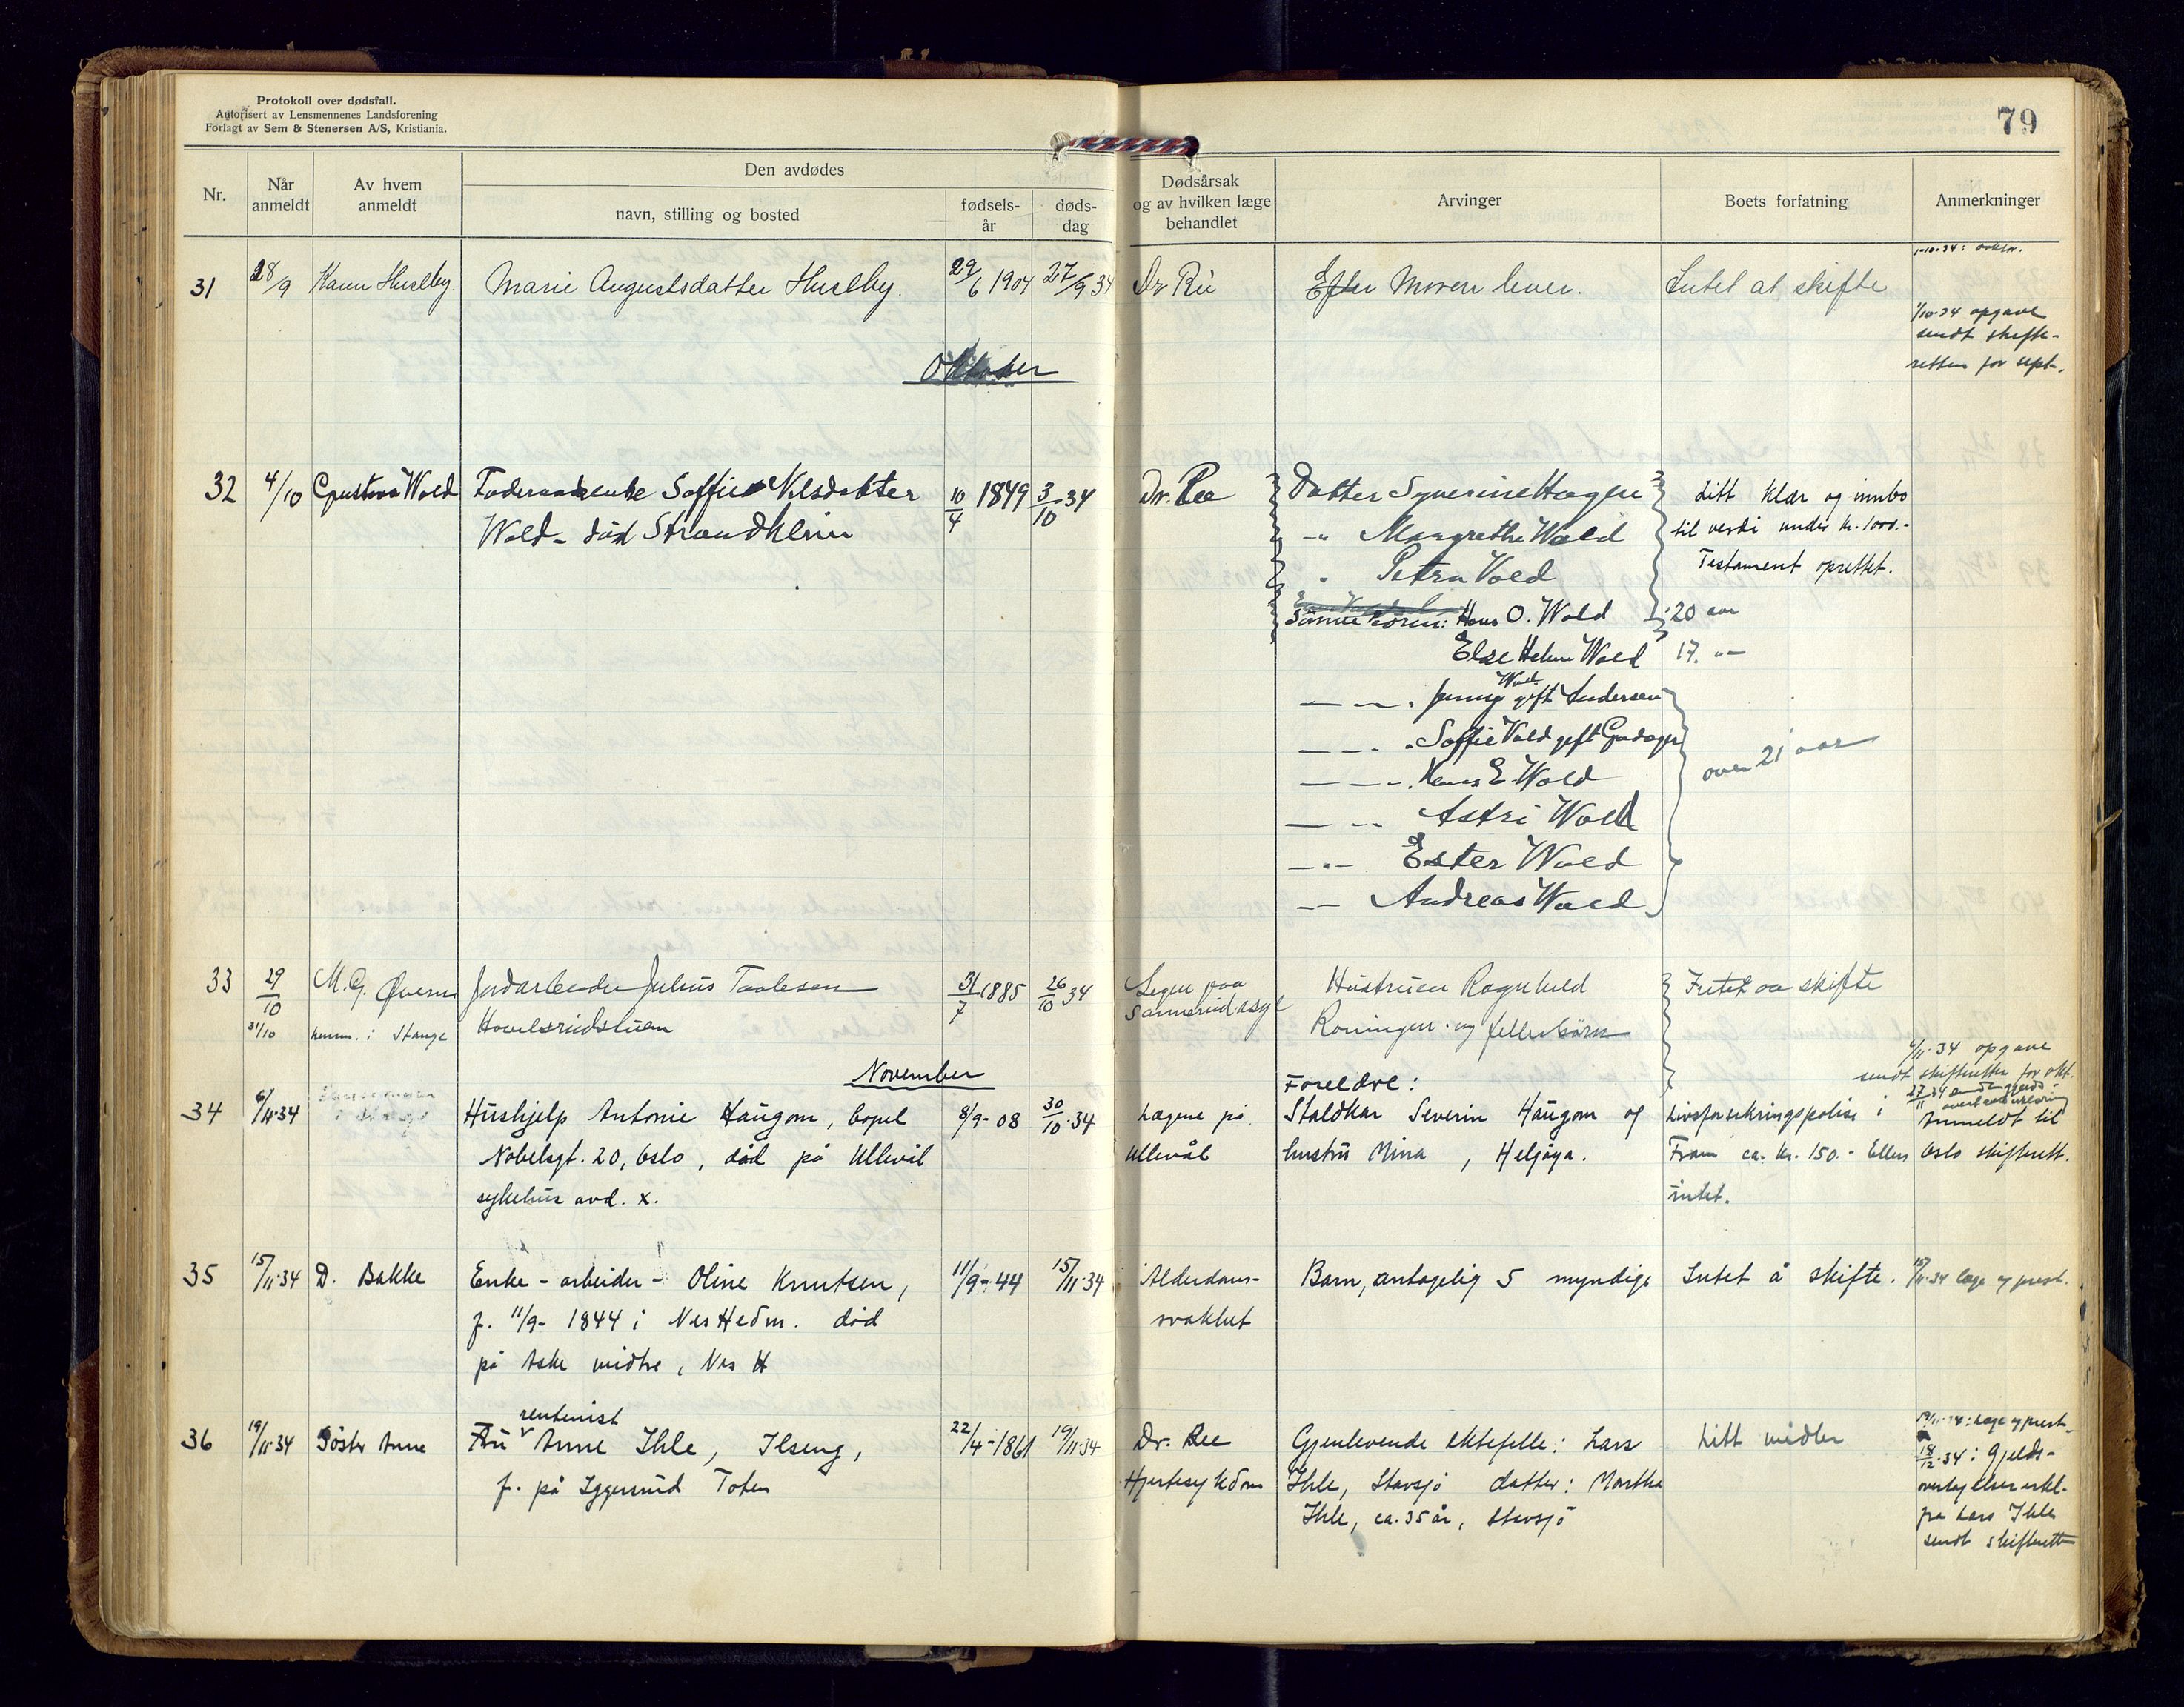 Protokoll over dødsfall.
Autorisert av Lensmennenes Landsforening
Forlagt av Sem & Stenersen A/S, Kristiania.
79
Nr.
Når anmeldt
Av hvem anmeldt
Den avdødes
navn, stilling og bosted
fødsels-år
døds-dag
Dødsårsak og av hvilken læge behandlet
Arvinger
Boets forfatning
Anmerkninger
31 28/9 Marie Augustsdatter 29/6 1904 27/9 34 Dr Moren lever. Intet at skifte
1/10-34 opgave
sendt skifte-
retten for sept.
Oktober
32 4/10 Wold Soffie Nilsdatter 10/4 1849 3/10 34 Dr. Ree Datter Syverine Hagen Litt klær og innbo
Wold - død
-"- Margrethe Wold til verdi under kr. 1000.-
" Petra Vold Testament oprettet.
Hans O. Wold 20 aar
Else Wold 17. "-
Jenny Wold gift Andersen
Soffie Vold gift
Hans E. Wold
over 21 aar
Astri Wold
Ester Wold
Andreas Wold
33 29/10 M. G. Jordarbeider Julius 31/7 1885 26/10 34 Hustruen Ragnhild Intet aa skifte
31/10 i Stange Sannerud asyl og felles børn
November
6/11-34 opgave
sendt skifteretten for okt.
Foreldre:
34 6/11-34 Hushjelp Antonie Haugom, 8/9-08 30/10-34 Lægene på Staldkar Severin Haugom og Livsforsikringspolise i Anmeldt til
Nobelsgt. 20, Oslo, død på Ullevål Ullevål hustru Mina, Helgøya. Fram ca. kr. 150.- Ellers Oslo skifterett.
sykehus avd. X. intet.
35 15/11-34 D. Bakke Enke - arbeider - Oline Knutsen, 11/9-44 15/11-34 Alderdoms- Barn, antagelig 5 myndige Intet å skifte. 15/11-34 læge og prest.
f. 11/9-1844 i Nes Hedm. død svakhet
på midtre, Nes H
rentenist
36 19/11-34 Søster Anne Fru Anne Ihle, Ilseng, 22/4-1861 19/11-34 Dr. Ree Gjenlevende ektefelle: Lars Litt midler 19/11-34: læge og prest.
f. på Toten Hjertesykdom Ihle, Stavsjø datter: Martha 18/12-34: Gjelds-
Ihle, ca. 35 år, Stavsjø
fra Lars Ihle
sendt skifterett